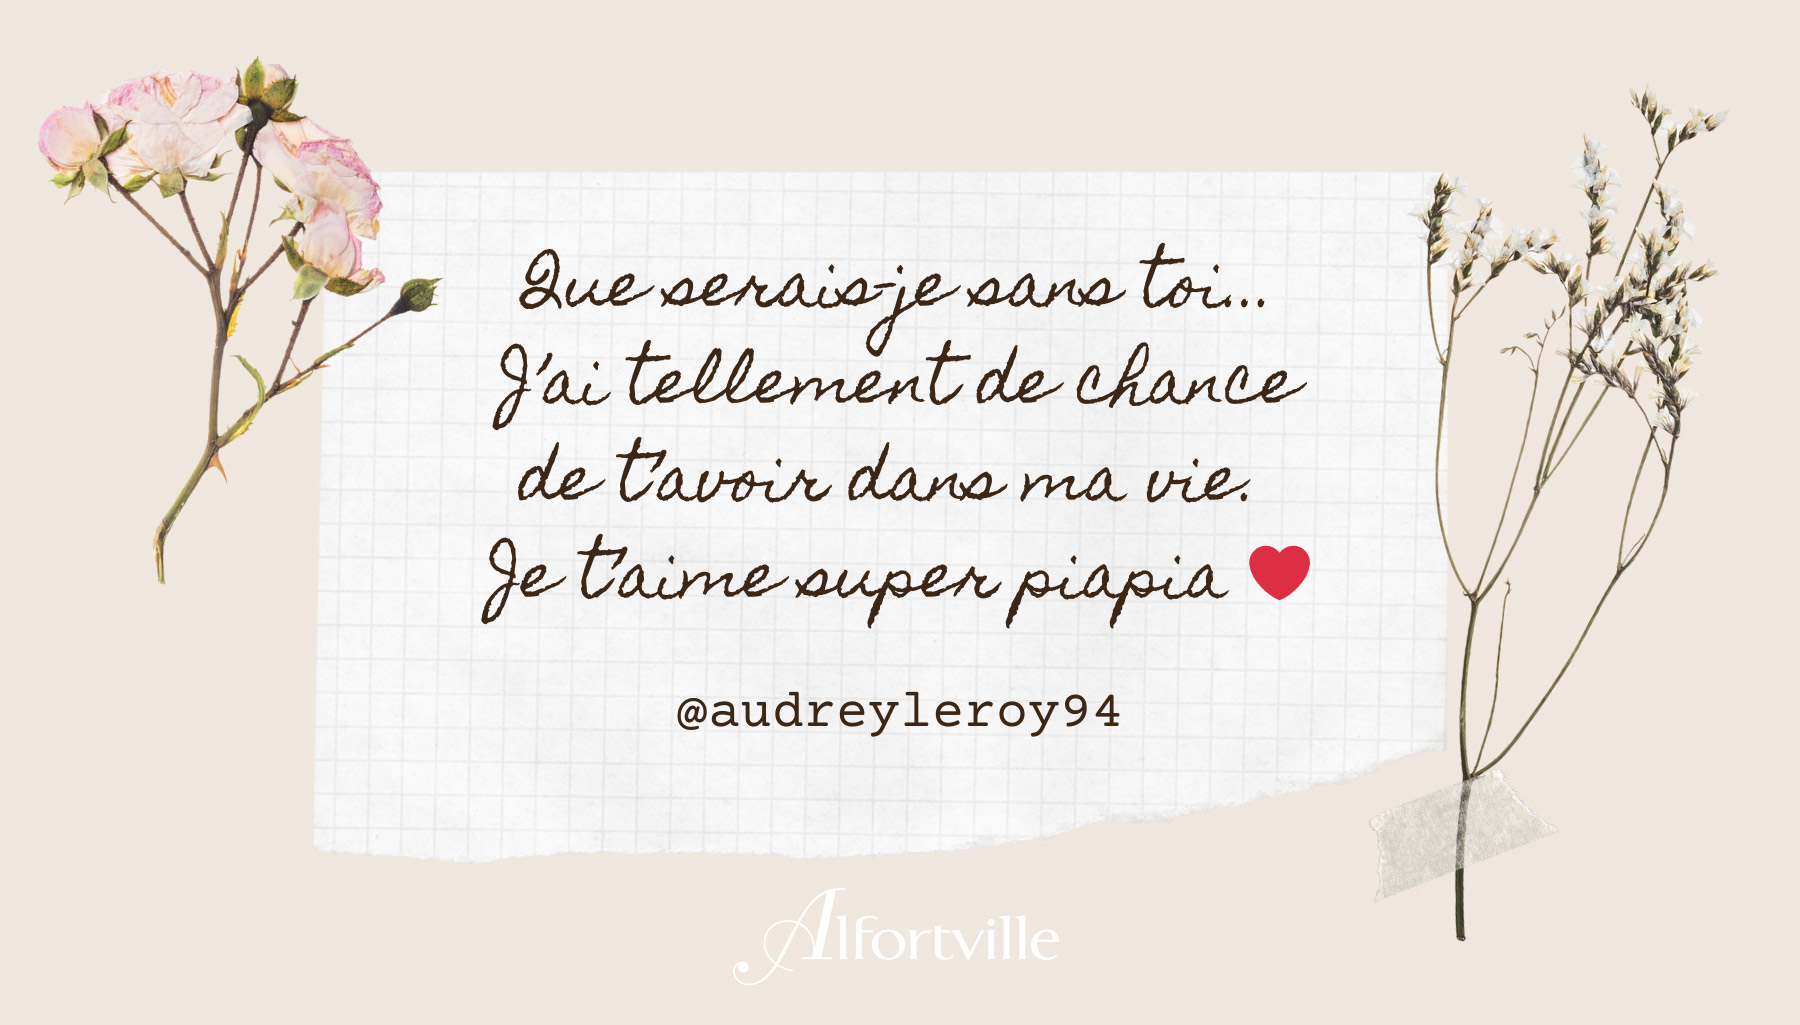 Que serais-je sans toi...
J'ai tellement de chance
de t'avoir dans ma vie.
Je t'aime super piapia ❤️
@audreyleroy94
Alfortville